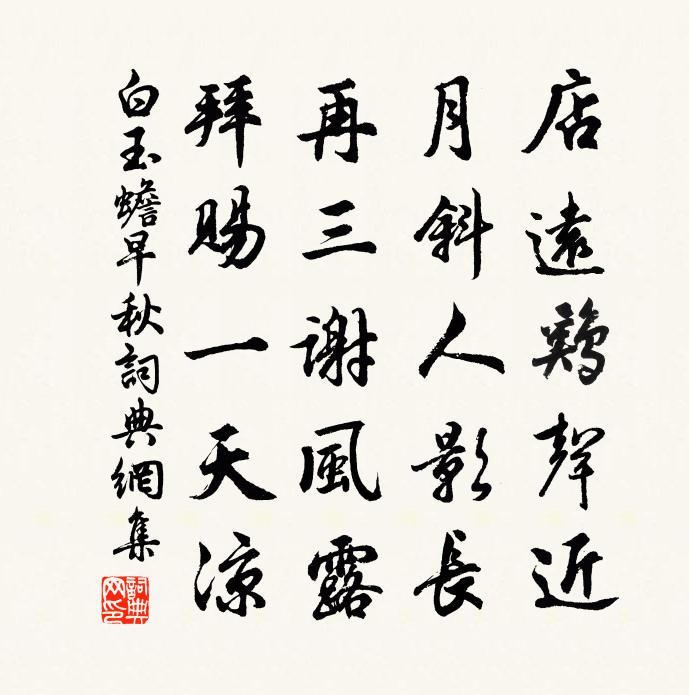 店遠鷄聲近
月斜人影長
再三謝風露
拜賜一天涼
白玉蟾早秋詞典網集
詞典網印